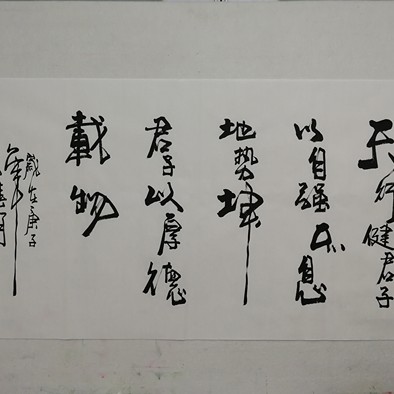 天行健君子
以自强不息
地势坤
君子以厚德
載物
歲在庚子